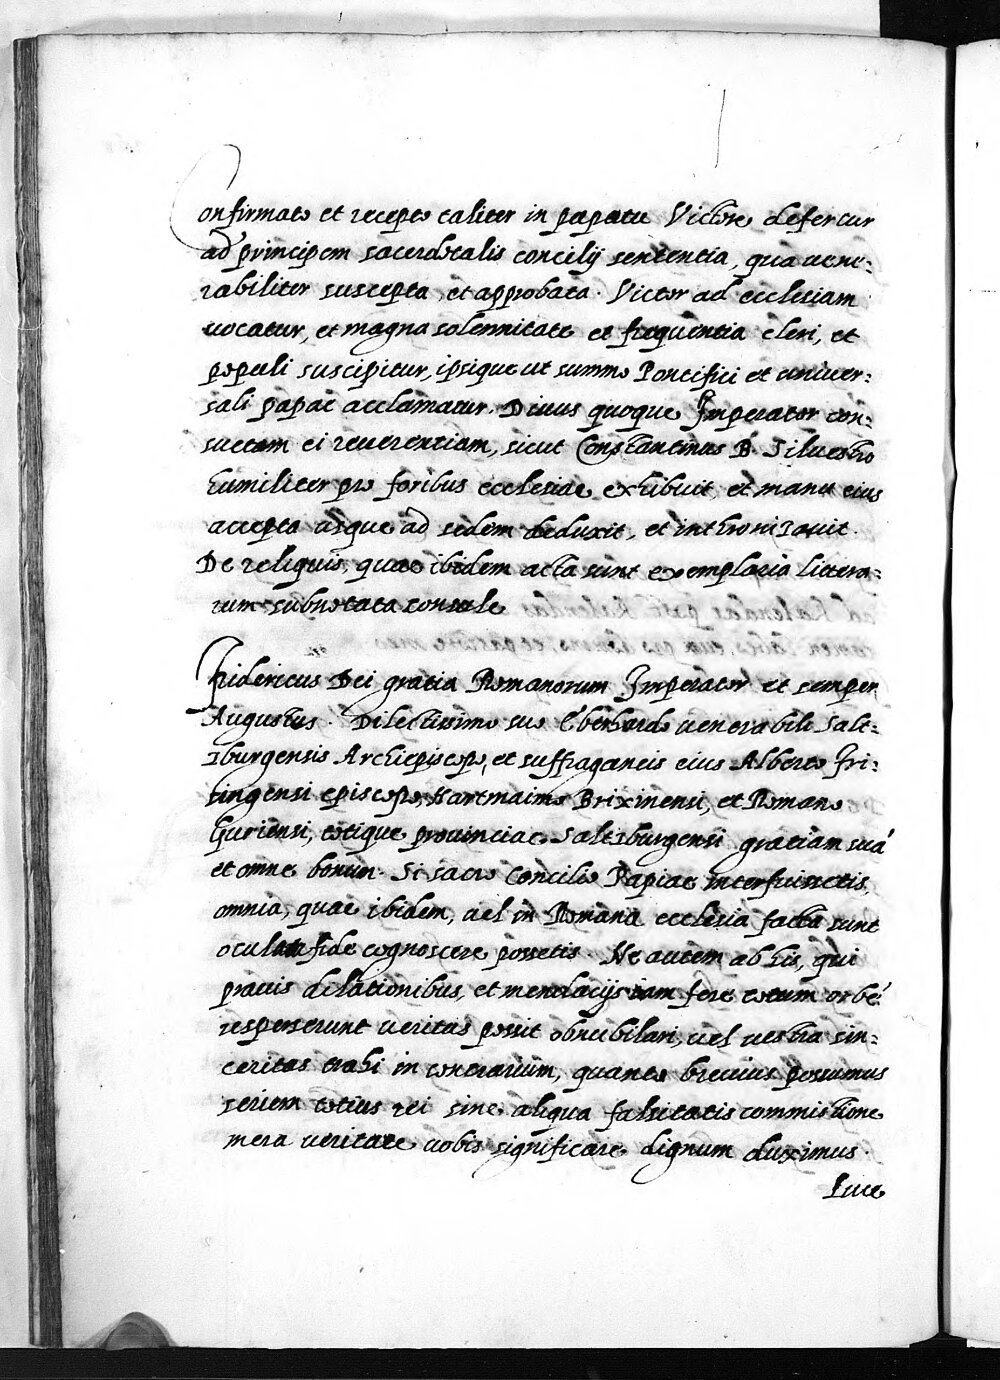 Confirmato et recepto taliter in papatu Victore defertur
ad principem sacerdotalis concilij sententia, qua vene:
rabiliter suscepta, et approbata. Victor ad ecclesiam
uocatur, et magna solennitate et frequentia cleri, et
populi suscipitur, ipsique ut summo Pontifici et univer:
sali papae acclamatur. Diuus quoque Imperator con:
suetam ei reuerentiam, sicut Constantinus B. Siluestro
humiliter pro foribus ecclesiae exhibuit, et manu eius
accepta usque ad sedem deduxit, et inthronizauit.
De reliquis, quae ibidem acta sunt exemplaria littera:
rum subnotata consule
Fridericus Dei gratia Romanorum Imperator et semper
Augustus. Dilectissimo suo Eberhardo uenerabili Salt:
zburgensis Archiepiscopo, et suffraganeis eius Alberto Fri:
singensi episcopo, Hartmaimo Brixinensi, et Romano
Guriensi, totique prouinciae Saltzburgensi gratiam suā
et omne bonum. Si sacro Concilio Papiae interfuissetis,
omnia, quae ibidem, uel in Romana ecclesia facta sunt
oculata fide cognoscere possetis. Ne autem ab his, qui
prauis delationibus, et mendacijs iam fere totum orbē
resperserunt ueritas possit obnubilari, uel uestra sin:
ceritas trahi in contrarium, quanto breuius possumus
seriem totius rei sine aliqua falsitatis commistione
mera ueritate uobis significare dignum duximus.